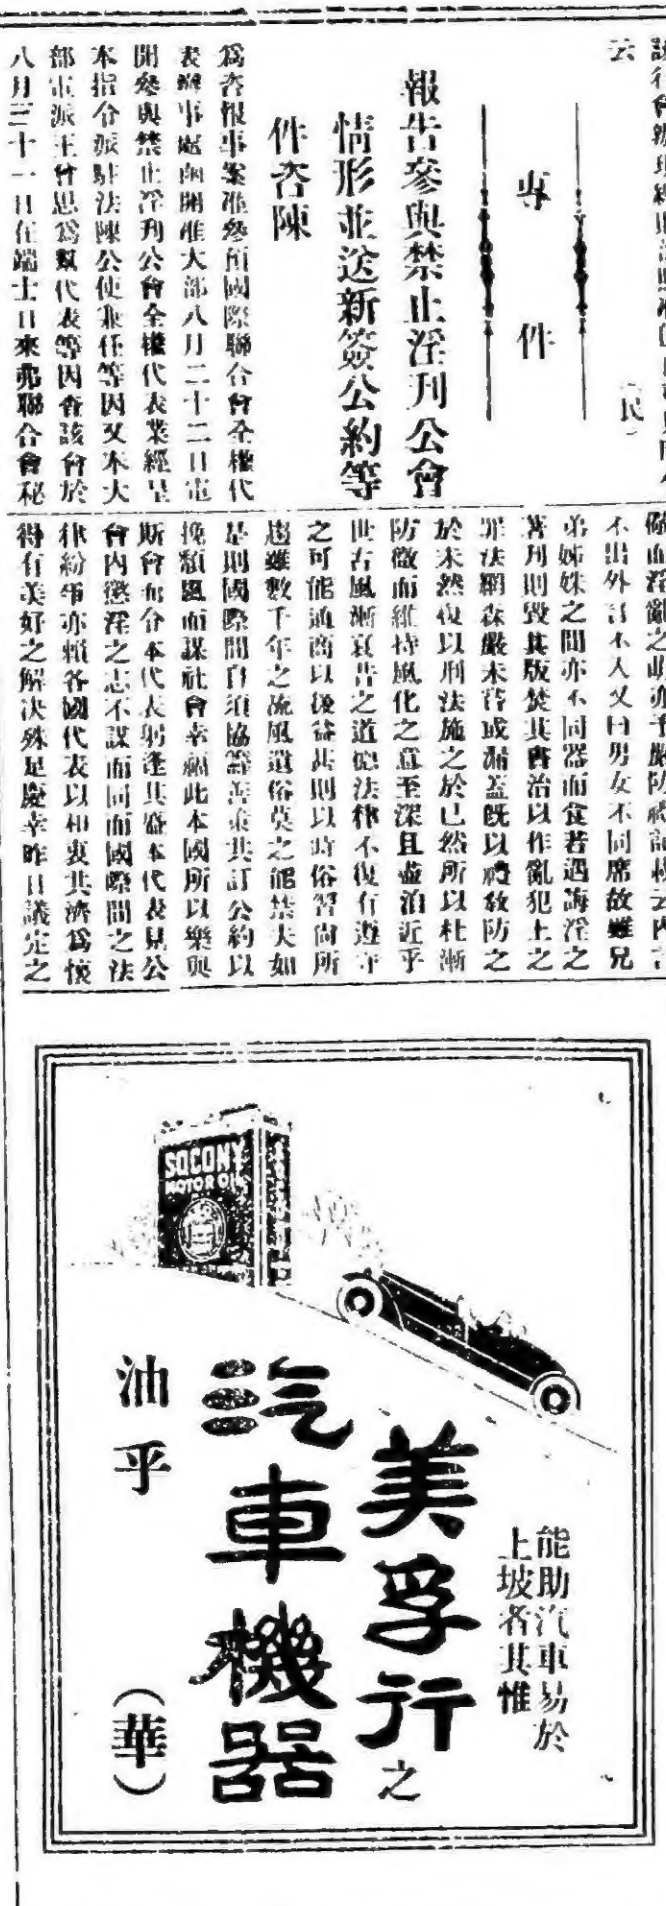 云
（民）
專件
報告參與禁止淫刊公會
情形並送新簽公約等
件咨陳
為咨報事案准參預國際聯合會全權代
表辦事處函開准大部八月二十二日電
開參與禁止淫刊公會全權代表業經呈
本指令派駐法陳公使兼任等因又本大
部電派王曾思為副代表等因查該會於
八月三十一日在端士日來弗聯合會秘
不出外言不入又曰男女不同席故雖兄
弟姊妹之間亦不同器而食若遇誨淫之
著刊則毀其版焚其書治以作亂犯上之
罪法網森嚴未容或漏蓋既以禮教防之
於未然復以刑法施之於已然所以杜漸
防微而維持風化之意至深且盡泊近乎
世古風漸衰昔之道德法律不復有遵守
之可能通商以後益甚則以時俗習尚所
趨雖數千年之流風遺俗莫之能禁夫如
是則國際間自須協籌善策共訂公約以
挽頹風而謀社會幸福此本國所以樂與
斯會而令本代表躬逢其盛本代表見公
會內懲淫之志不謀而同而國際間之法
律紛爭亦賴各國代表以和衷共濟為懷
得有美好之解決殊足慶幸昨日議定之
SOCONY
MOTOR OIL
能助汽車易於
上坡者其惟
美孚行之
汽車機器
油乎
（華）